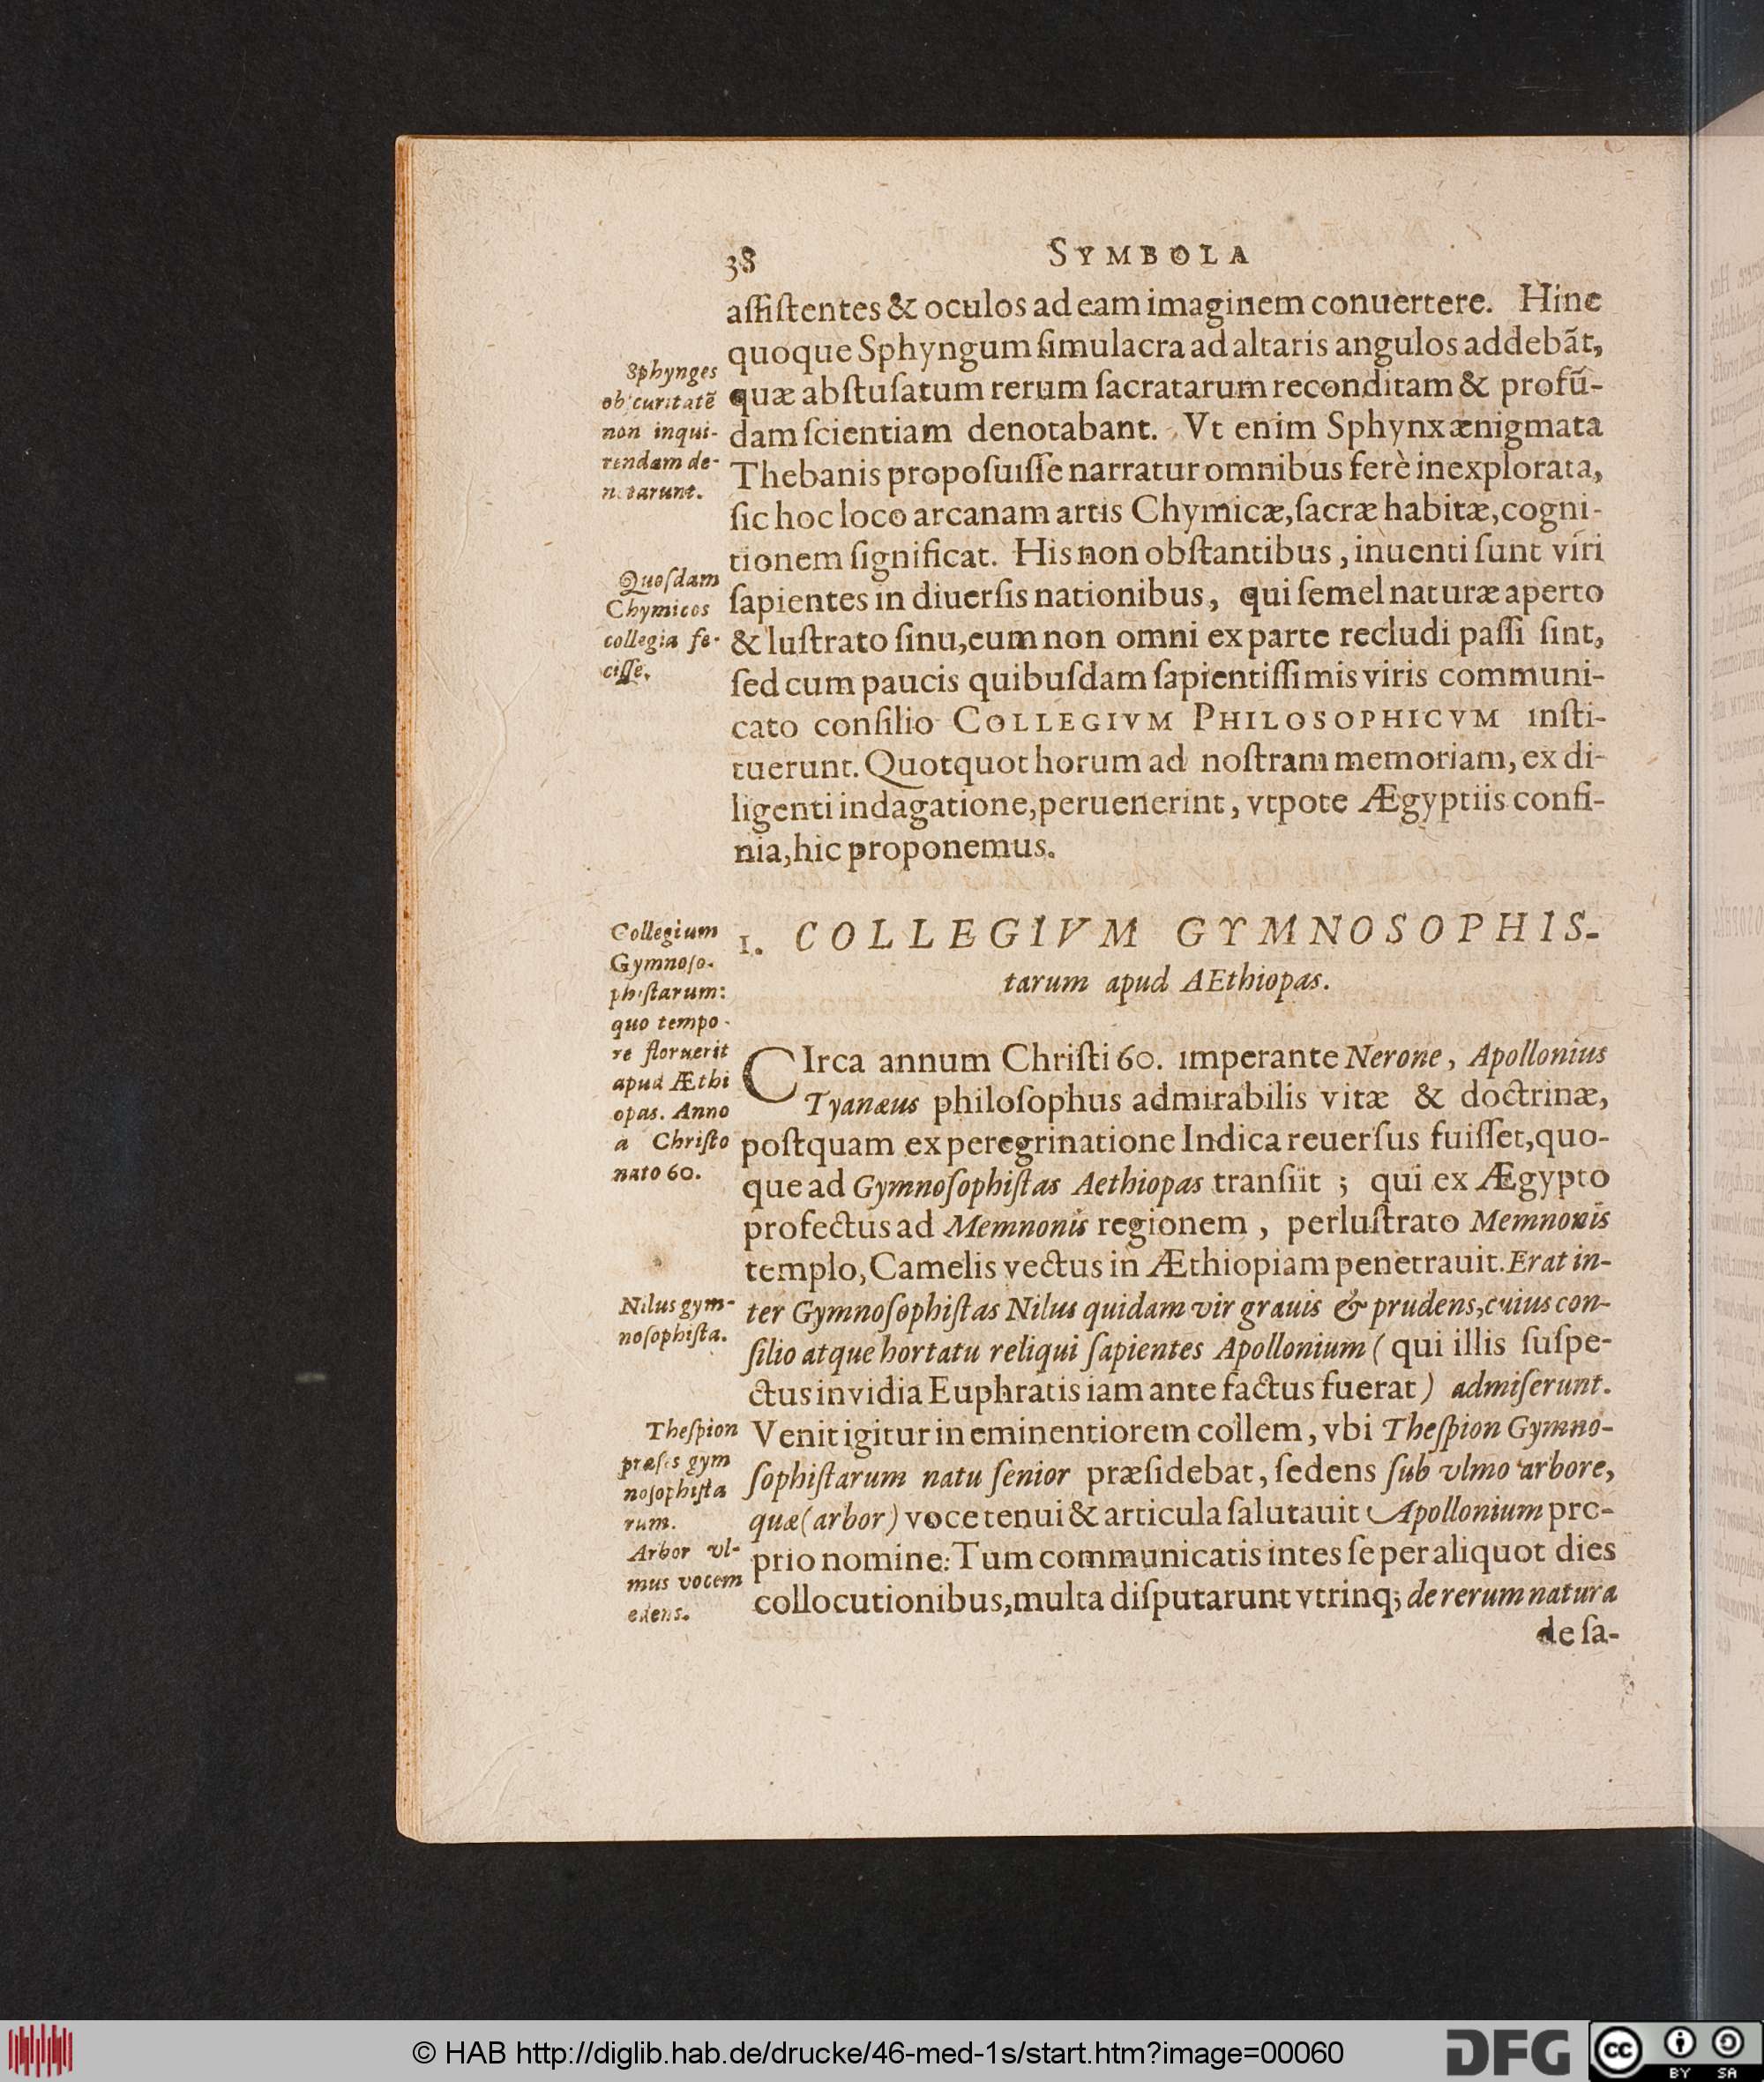 38 SYMBOLA
aſſiſtentes & oculos ad eam imaginem conuertere. Hinc
quoque Sphyngum ſimulacra ad altaris angulos addebãt,
quæ abſtuſatum rerum ſacratarum reconditam & profũ-
dam ſcientiam denotabant. Vt enim Sphynx ænigmata
Thebanis propoſuiſſe narratur omnibus ferè inexplorata,
ſic hoc loco arcanam artis Chymicæ, ſacræ habitæ, cogni-
tionem ſignificat. His non obſtantibus, inuenti ſunt viri
ſapientes in diuerſis nationibus, qui ſemel naturæ aperto
& luſtrato ſinu, eum non omni ex parte recludi paſſi ſint,
ſed cum paucis quibuſdam ſapientiſſimis viris communi-
cato conſilio COLLEGIVM PHILOSOPHICVM inſti-
tuerunt. Quotquot horum ad noſtram memoriam, ex di-
ligenti indagatione, peruenerint, vtpote Ægyptiis confi-
nia, hic proponemus.
Sphynges
obſcuritatẽ
non inqui-
rendam de-
notarunt.
Quoſdam
Chymicos
collegia fe-
ciſſe.
1. COLLEGIVM GYMNOSOPHIS-
tarum apud AEthiopas.
CIrca annum Chriſti 60. imperante Nerone, Apollonius
Tyanæus philoſophus admirabilis vitæ & doctrinæ,
poſtquam ex peregrinatione Indica reuerſus fuiſſet, quo-
que ad Gymnoſophiſtas Aethiopas tranſiit ; qui ex Ægypto
profectus ad Memnonis regionem , perluſtrato Memnonis
templo, Camelis vectus in Æthiopiam penetrauit. Erat in-
ter Gymnoſophiſtas Nilus quidam vir grauis & prudens, cuius con-
ſilio atque hortatu reliqui ſapientes Apollonium ( qui illis ſuſpe-
ctus invidia Euphratis iam ante factus fuerat ) admiſerunt.
Venit igitur in eminentiorem collem, vbi Theſpion Gymno-
ſophiſtarum natu ſenior præſidebat, ſedens ſub vlmo arbore,
quæ (arbor) voce tenui & articula ſalutauit Apollonium pro-
prio nomine: Tum communicatis intes ſe per aliquot dies
collocutionibus, multa diſputarunt vtrinq; de rerum natura
de ſa-
Collegium
Gymnoſo-
phiſtarum:
quo tempo-
re floruerit
apud Æthi
opas. Anno
a Chriſto
nato 60.
Nilus gym-
noſophiſta.
Theſpion
præſes gym
noſophiſta
rum.
Arbor vl-
mus vocem
edens.
© HAB http://diglib.hab.de/drucke/46-med-1s/start.htm?image=00060
DFG
cc
BY SA